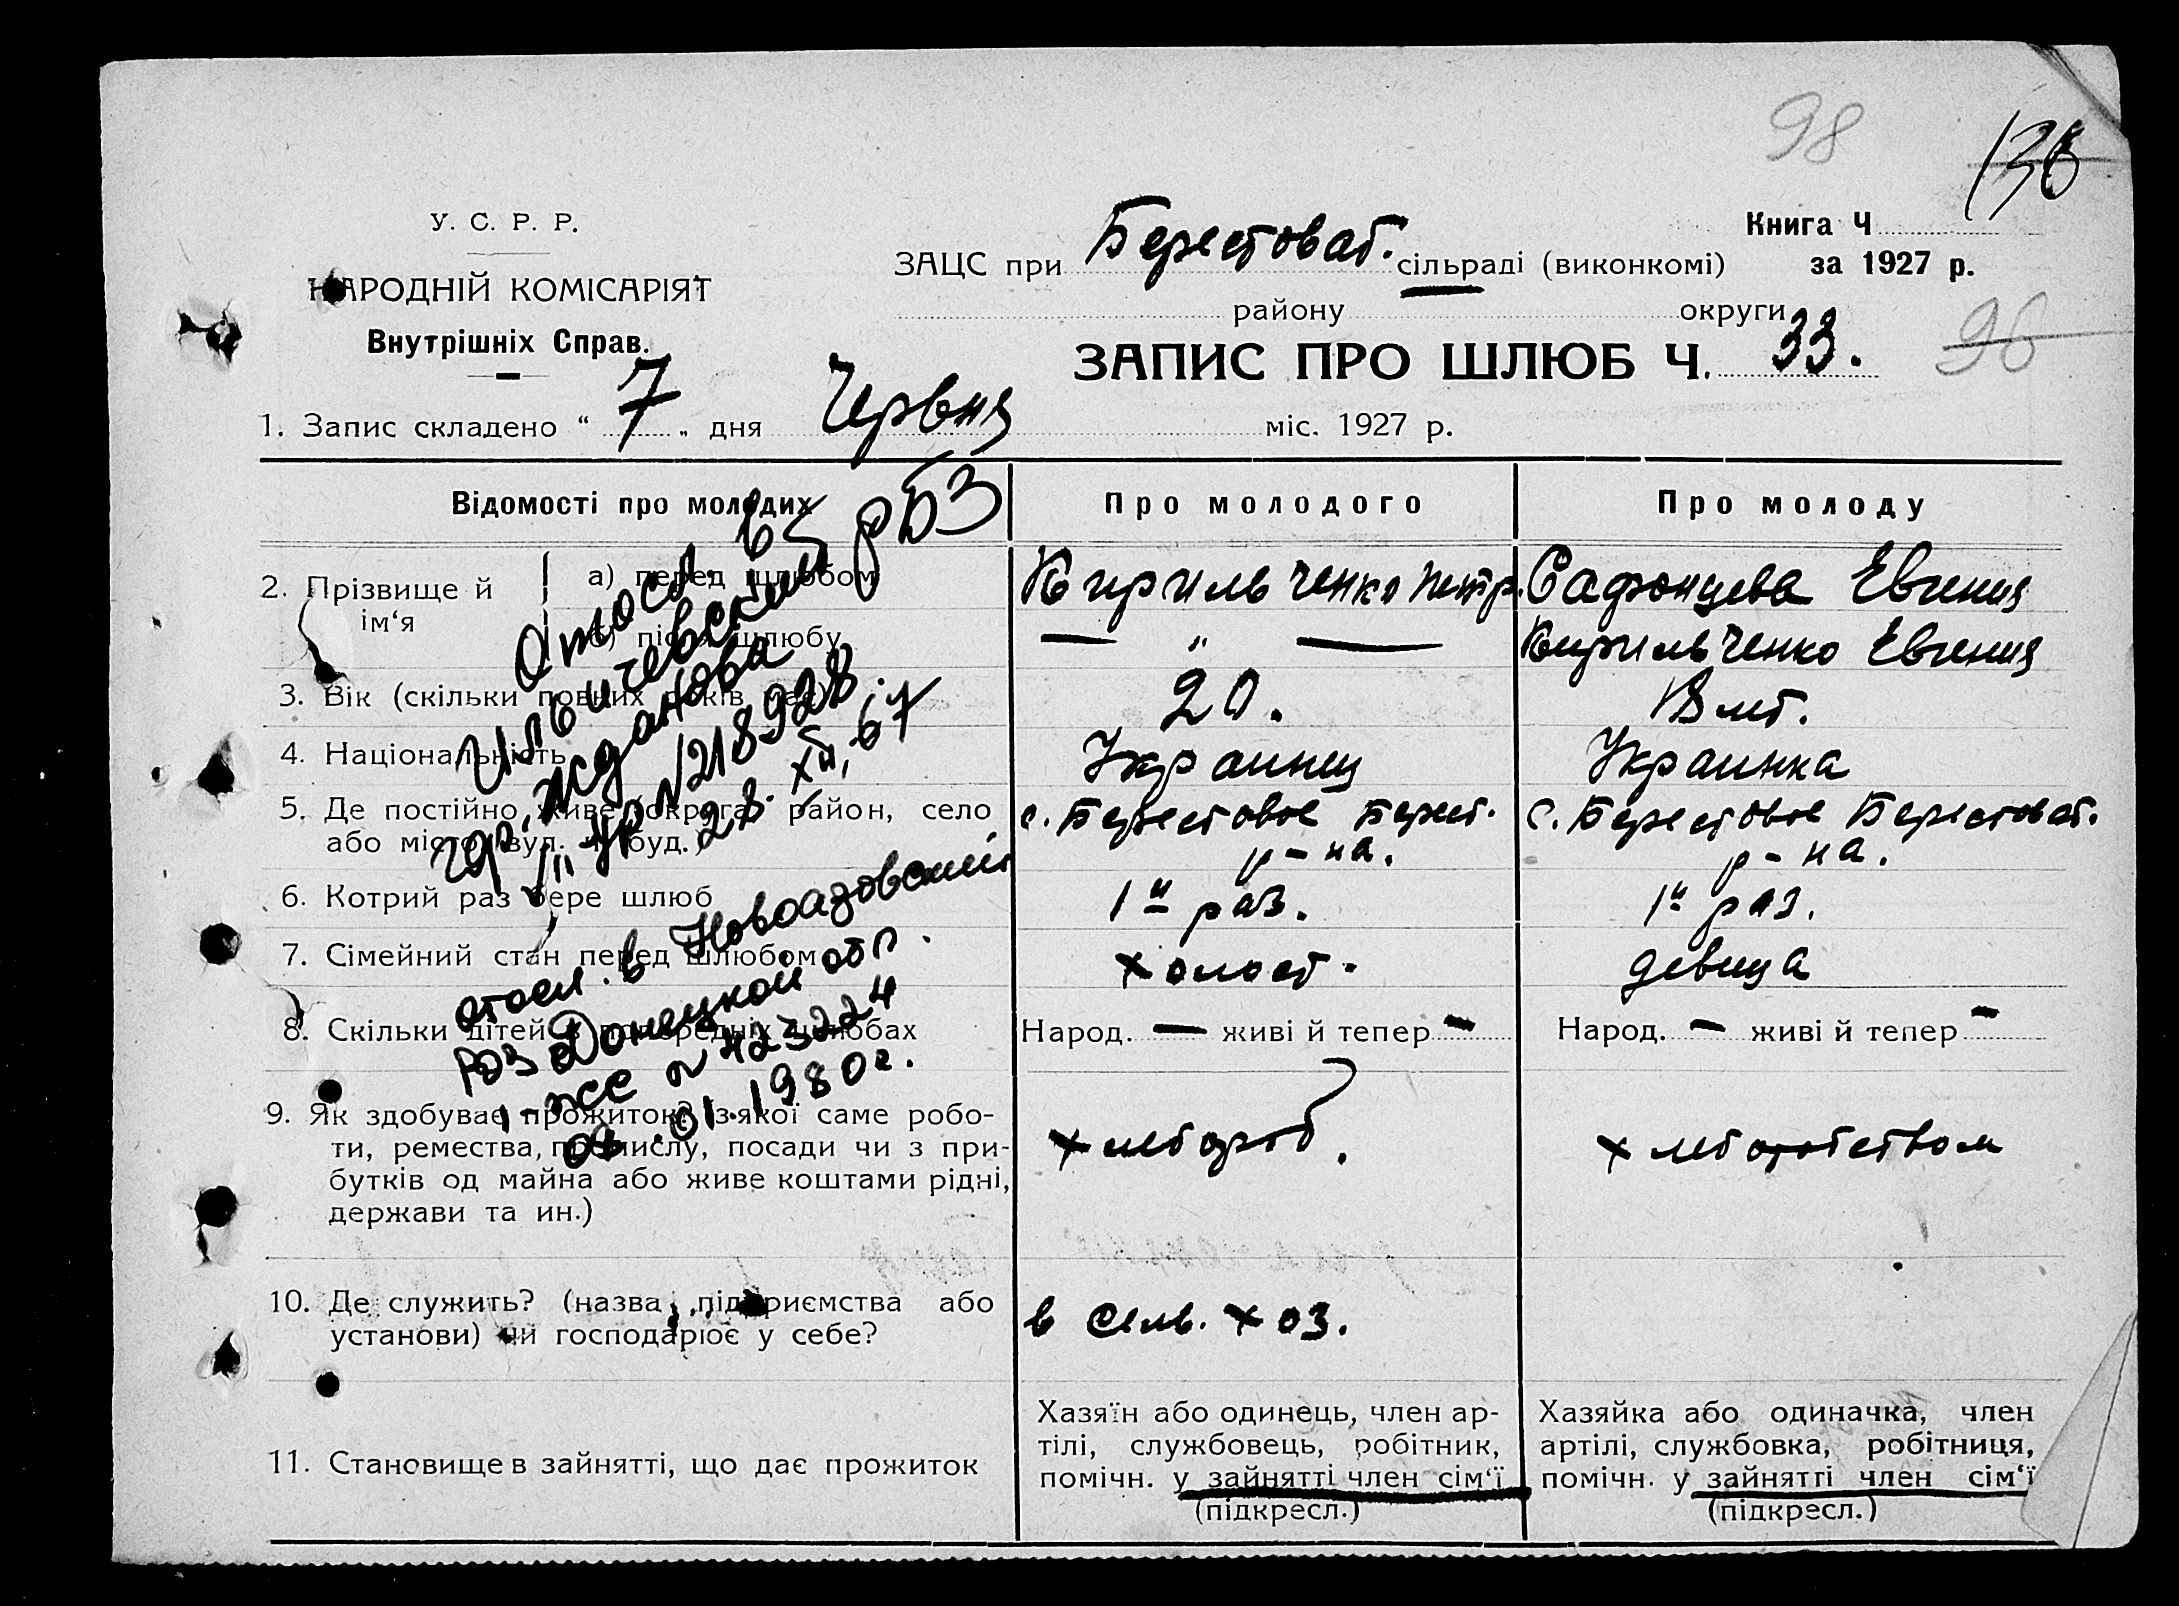 98
136
У. С. Р. Р.
НАРОДНІЙ КОМІСАРІЯТ
Внутрішніх Справ.
Книга Ч
за 1927 р.
ЗАЦС при Берестоват. сільраді (виконкомі)
району округи
96
ЗАПИС ПРО ШЛЮБ Ч. 33.
1. Запис складено “ 7 „ дня Червня міс. 1927 р.
Відомості про молодих
Про молодого
Про молоду
2. Прізвище й ім‘я
а) перед шлюбом
Кирильченко Петр.
Сафонцева Евгения
б) після шлюбу
— " —
Кирильченко Евгения
3. Вік (скільки повних років має)
20.
18 лет.
4. Національність
Украинец
Украинка
5. Де постійно живе (округа, район, село
або місто, вул. ч. буд.)
с. Берестовое Берест.
р-на.
с. Берестовое Берестоват.
р-на.
6. Котрий раз бере шлюб
1й раз.
1й раз.
7. Сімейний стан перед шлюбом
холост.
девица
8. Скільки дітей в попередніх шлюбах
Народ. — живі й тепер —
Народ. — живі й тепер —
9. Як здобуває прожиток? (з якої саме робо-
ти, ремества, промислу, посади чи з при-
бутків од майна або живе коштами рідні,
держави та ин.)
хлебороб.
хлеборобством
10. Де служить? (назва підприємства або
установи) чи господарює у себе?
в сельхоз.
11. Становище в зайнятті, що дає прожиток
Хазяїн або одинець, член ар-
тілі, службовець, робітник,
помічн. у зайнятті член сім‘ї
(підкресл.)
Хазяйка або одиначка, член
артілі, службовка, робітниця,
помічн. у зайнятті член сім‘ї
(підкресл.)
Отосл. в
Ильичевский рБЗ
гор. Жданова
N218928
28. XII. 67
отосл. в Новоазовский
Донецкой обл.
N 423224
01.1980г.